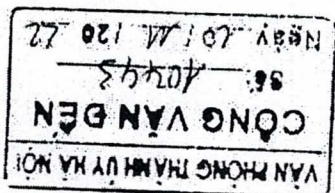 VĂN PHÒNG THÀNH ỦY HÀ NỘI
CÔNG VĂN ĐẾN
Số:
Ngày / 11 / 20 22